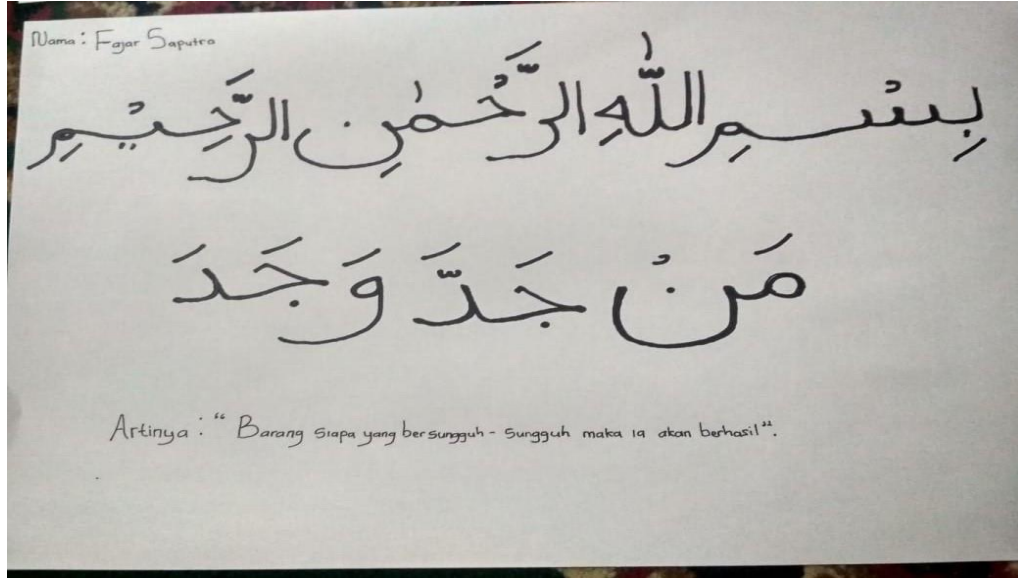 Nama : Fajar Saputra
بِسْمِ اللّٰهِ الرَّحْمٰنِ الرَّحِيْمِ
مَنْ جَدَّ وَجَدَ
Artinya : “ Barang siapa yang bersungguh - sungguh maka ia akan berhasil”.